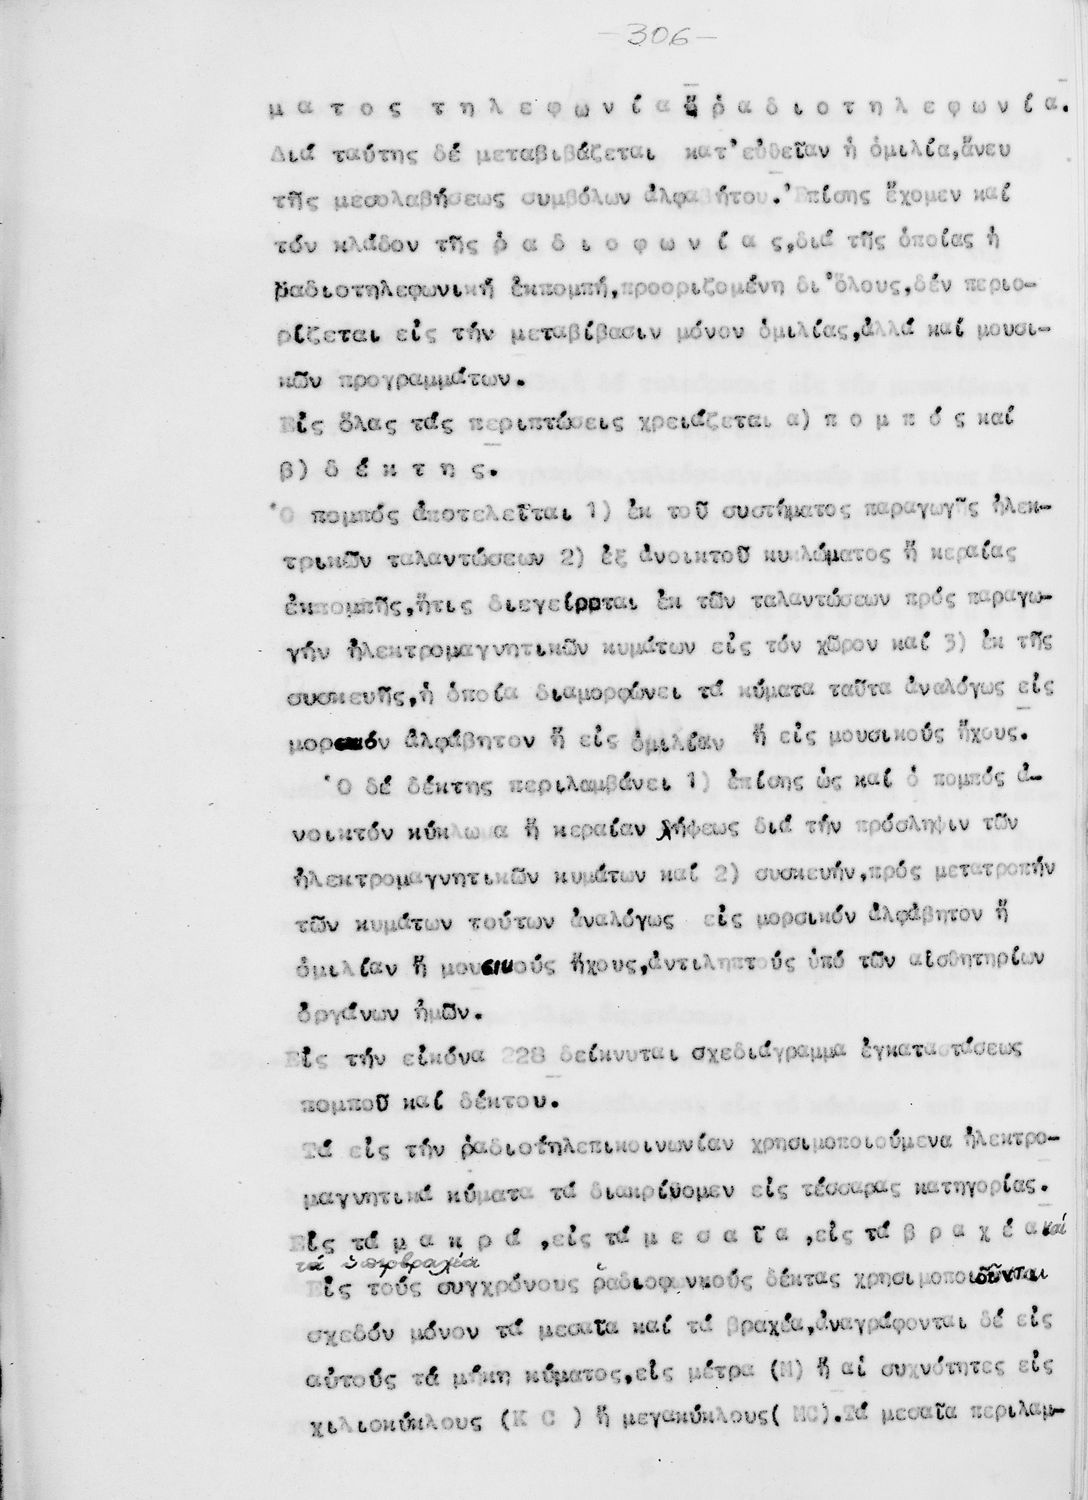 -306-
μ α τ ο ς  τ η λ ε φ ω ν ί α ἤ ῥ α δ ι ο τ η λ ε φ ω ν ί α.
Διά ταύτης δέ μεταβιβάζεται κατ'εὐθεῖαν ἡ ὁμιλία,ἄνευ
τῆς μεσολαβήσεως συμβόλων ἀλφαβήτου.'Επίσης ἔχομεν καί
τόν κλάδον τῆς ῥ α δ ι ο φ ω ν ί α ς,διά τῆς ὁποίας ἡ
ραδιοτηλεφωνική ἐκπομπή,προοριζομένη δι'ὅλους,δέν περιο-
ρίζεται εἰς τήν μεταβίβασιν μόνον ὁμιλίας,ἀλλά καί μουσι-
κῶν προγραμμάτων.
Εἰς ὅλας τάς περιπτώσεις χρειάζεται α) π ο μ π ό ς καί
β) δ έ κ τ η ς.
'Ο πομπός ἀποτελεῖται 1) ἐκ τοῦ συστήματος παραγωγῆς ἠλεκ-
τρικῶν ταλαντώσεων 2) ἐξ ἀνοικτοῦ κυκλώματος ἤ κεραίας
ἐκπομπῆς,ἥτις διεγείρεται ἐκ τῶν ταλαντώσεων πρός παραγω-
γήν ἠλεκτρομαγνητικῶν κυμάτων εἰς τόν χῶρον καί 3) ἐκ τῆς
συσκευῆς,ἡ ὁποία διαμορφώνει τά κύματα ταῦτα ἀναλόγως εἰς
μορσικόν ἀλφάβητον ἤ εἰς ὁμιλίαν ἤ εἰς μουσικούς ἤχους.
'Ο δέ δέκτης περιλαμβάνει 1) ἐπίσης ὡς καί ὁ πομπός ἀ-
νοικτόν κύκλωμα ἤ κεραίαν λήψεως διά τήν πρόσληψιν τῶν
ἠλεκτρομαγνητικῶν κυμάτων καί 2) συσκευήν,πρός μετατροπήν
τῶν κυμάτων τούτων ἀναλόγως εἰς μορσικόν ἀλφάβητον ἤ
ὁμιλίαν ἤ μουσικούς ἤχους,ἀντιληπτούς ὑπό τῶν αἰσθητηρίων
ὀργάνων ἡμῶν.
Εἰς τήν εἰκόνα 228 δείκνυται σχεδιάγραμμα ἐγκαταστάσεως
πομποῦ καί δέκτου.
Τά εἰς τήν ῥαδιοτηλεπικοινωνίαν χρησιμοποιούμενα ἠλεκτρο-
μαγνητικά κύματα τά διακρίνομεν εἰς τέσσαρας κατηγορίας.
Εἰς τά μ α κ ρ ά ,εἰς τά μ ε σ α ῖ α ,εἰς τά β ρ α χ έ α καί
τά ὑπερβραχέα
Εἰς τούς συγχρόνους ῥαδιοφωνικούς δέκτας χρησιμοποιοῦνται
σχεδόν μόνον τά μεσαῖα καί τά βραχέα,ἀναγράφονται δέ εἰς
αὐτούς τά μήκη κύματος,εἰς μέτρα (Μ) ἤ αἱ συχνότητες εἰς
χιλιοκύκλους (K C ) ἤ μεγακύκλους( MC).Τά μεσαῖα περιλαμ-